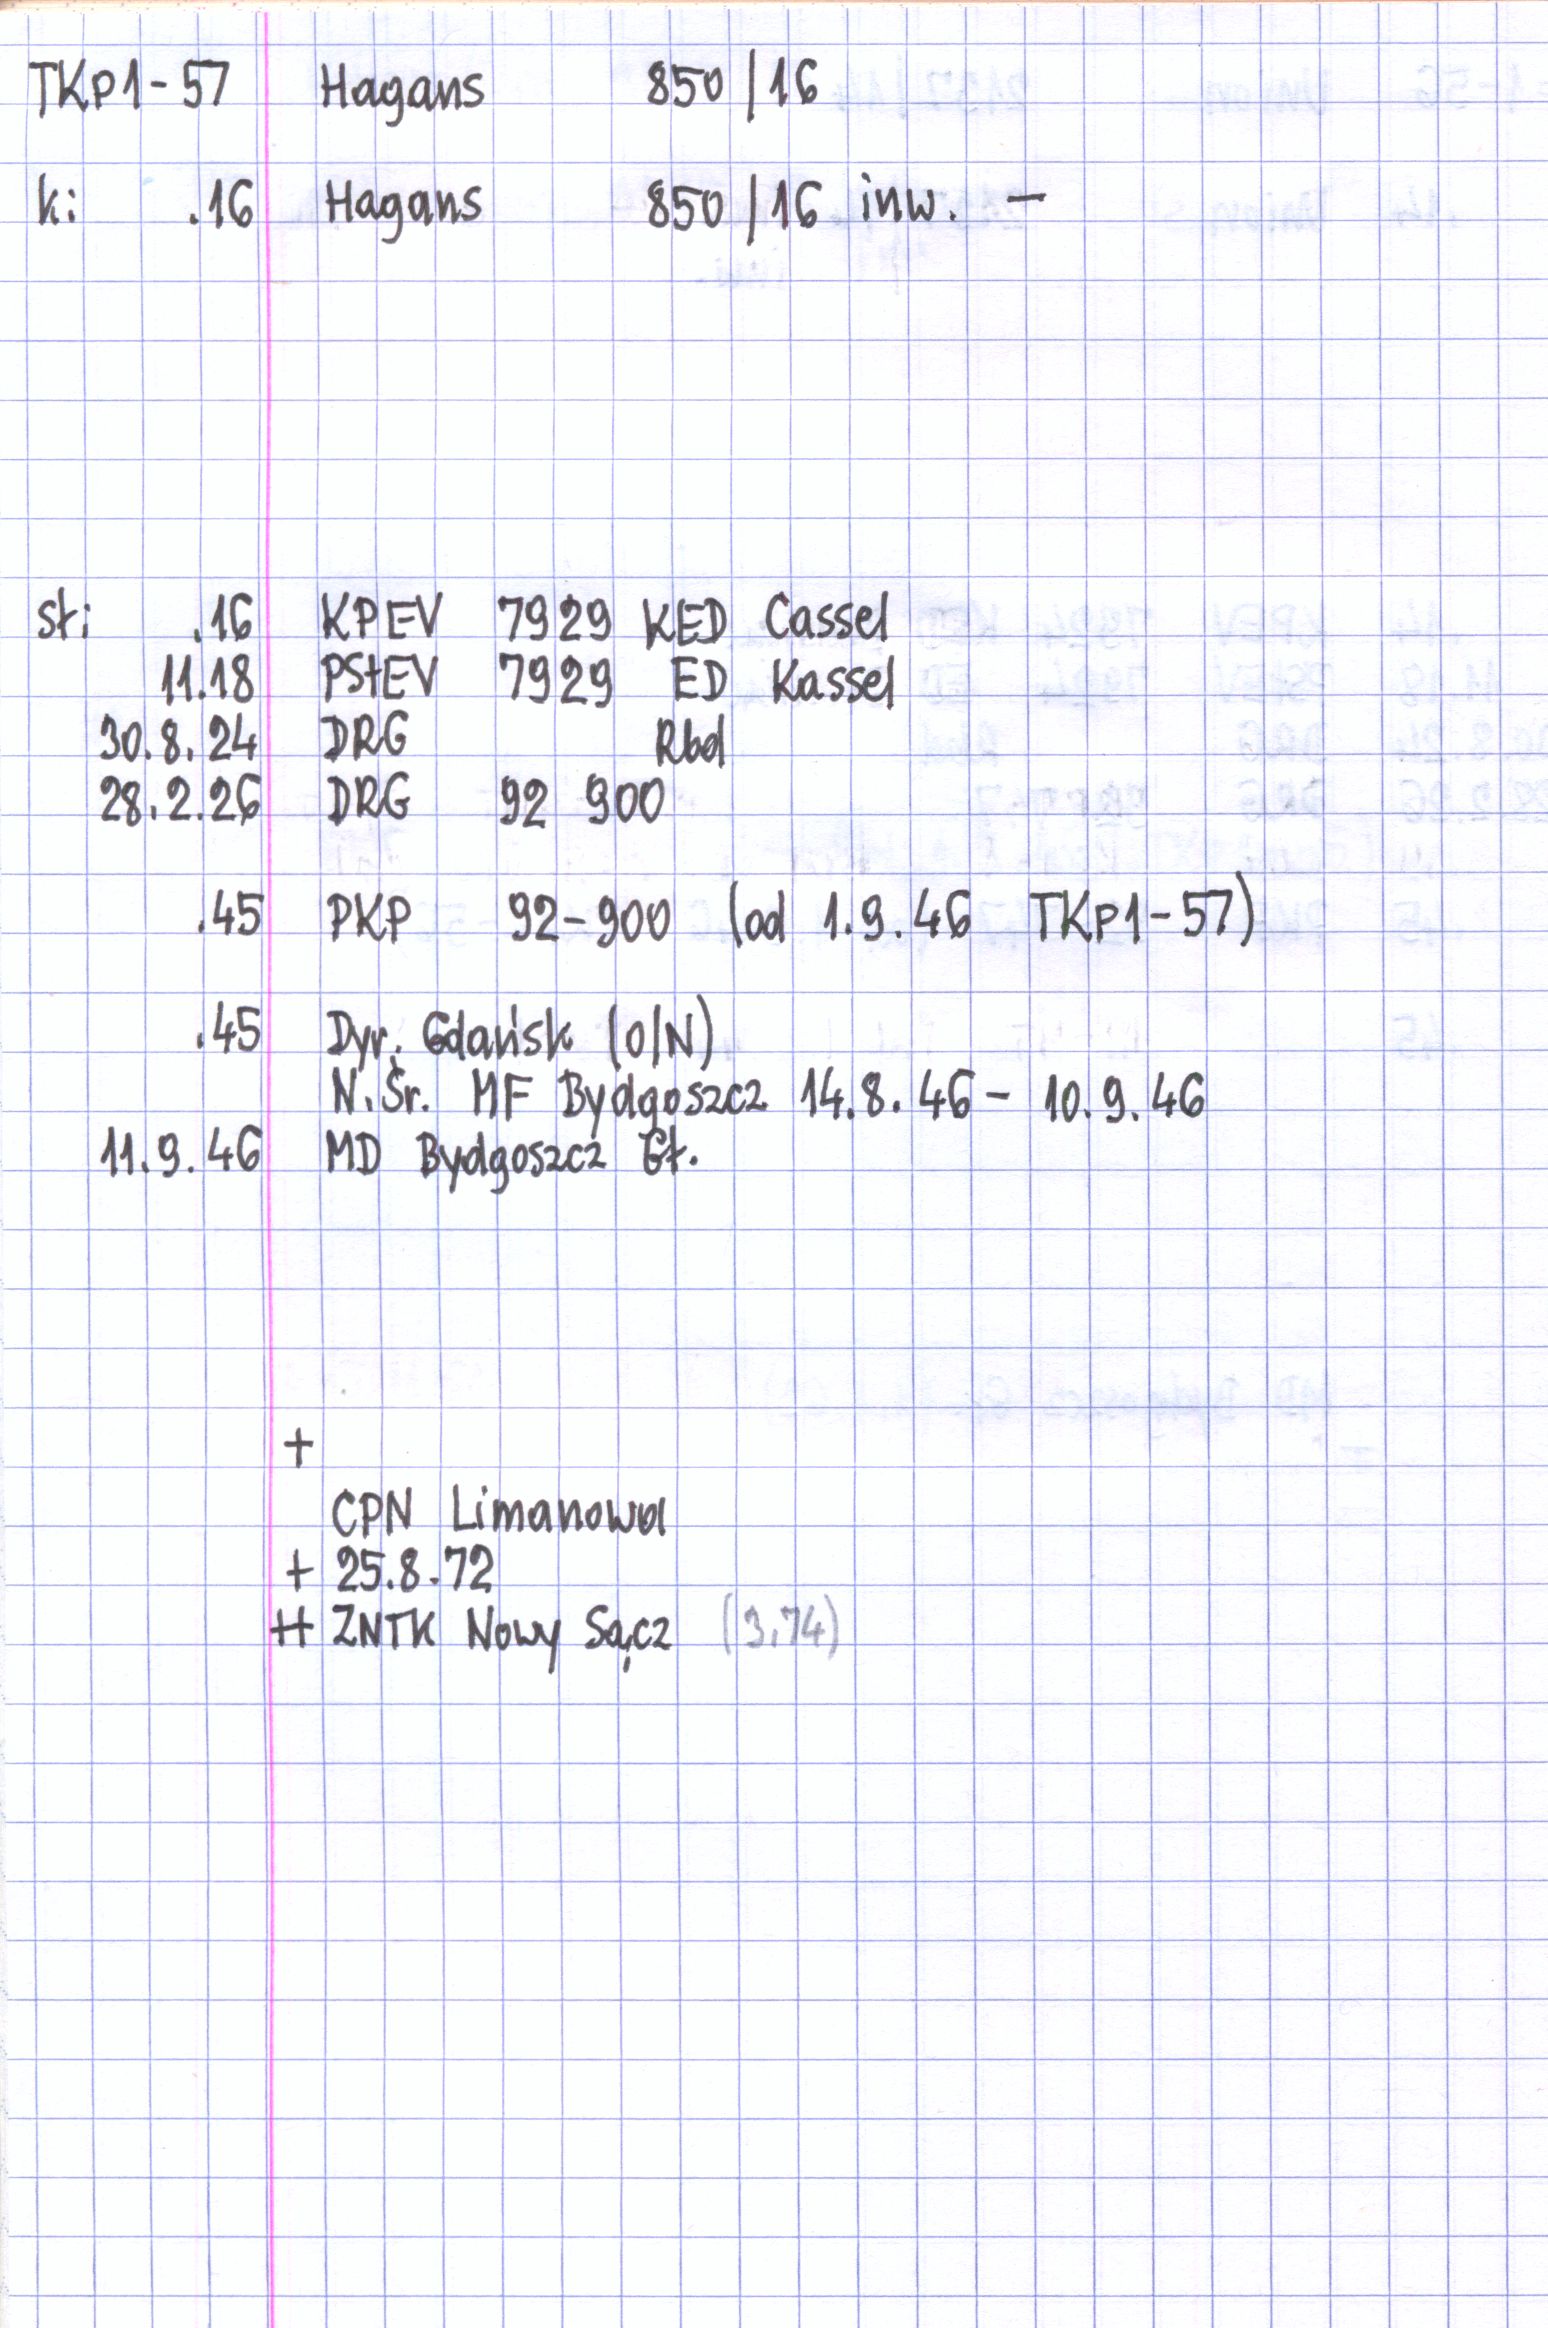 TKp1-57 Hagans 850/16
k: .16 Hagans 850/16 inw. –
st: .16 KPEV 7929 KED Cassel
11.18 PStEV 7929 ED Kassel
30.8.24 DRG Rbd
28.2.26 DRG 92 900
.45 PKP 92-900 (od 1.9.46 TKp1-57)
.45 Dyr. Gdańsk (O/N)
N.Śr. MF Bydgoszcz 14.8.46 - 10.9.46
11.9.46 MD Bydgoszcz Gł.
+
CPN Limanowa
+ 25.8.72
++ ZNTK Nowy Sącz (3.74)